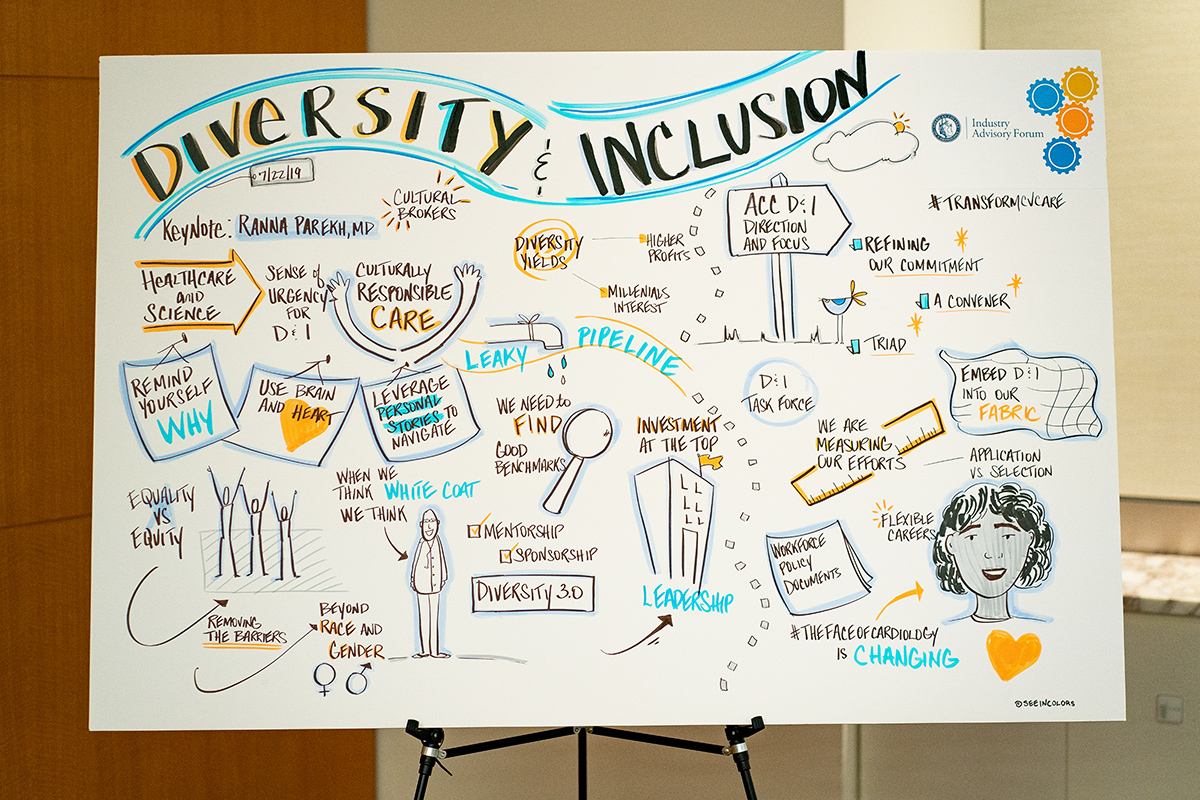 DIVERSITY & INCLUSION
7/22/19
Industry
Advisory Forum
KEYNOTE: RANNA PAREKH, MD
CULTURAL
BROKERS
HEALTHCARE
AND
SCIENCE
SENSE of
URGENCY
FOR
D&I
CULTURALLY
RESPONSIBLE
CARE
DIVERSITY
YIELDS
HIGHER
PROFITS
MILLENIALS
INTEREST
LEAKY PIPELINE
REMIND
YOURSELF
WHY
USE BRAIN
AND HEART
LEVERAGE
PERSONAL
STORIES TO
NAVIGATE
WE NEED to
FIND
GOOD
BENCHMARKS
INVESTMENT
AT THE TOP
LEADERSHIP
EQUALITY
VS
EQUITY
REMOVING
THE BARRIERS
WHEN WE
THINK WHITE COAT
WE THINK
BEYOND
RACE AND
GENDER
MENTORSHIP
SPONSORSHIP
DIVERSITY 3.0
ACC D&I
DIRECTION
AND FOCUS
#TRANSFORMCVCARE
REFINING
OUR COMMITMENT
A CONVENER
TRIAD
D&I
TASK FORCE
WE ARE
MEASURING
OUR EFFORTS
EMBED D&I
INTO OUR
FABRIC
APPLICATION
VS SELECTION
FLEXIBLE
CAREERS
WORKFORCE
POLICY
DOCUMENTS
#THEFACEOFCARDIOLOGY
IS CHANGING
@SEEINCOLORS